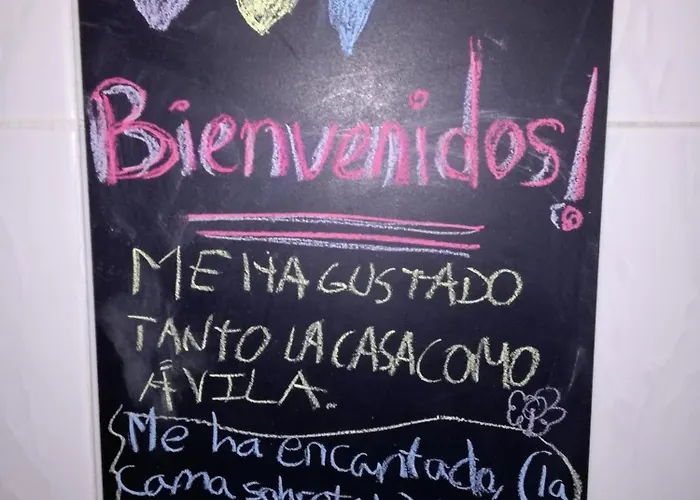 Bienvenidos!
ME HA GUSTADO
TANTO LA CASA COMO
ÁVILA.
Me ha encantado, (la
cama sobretodo)